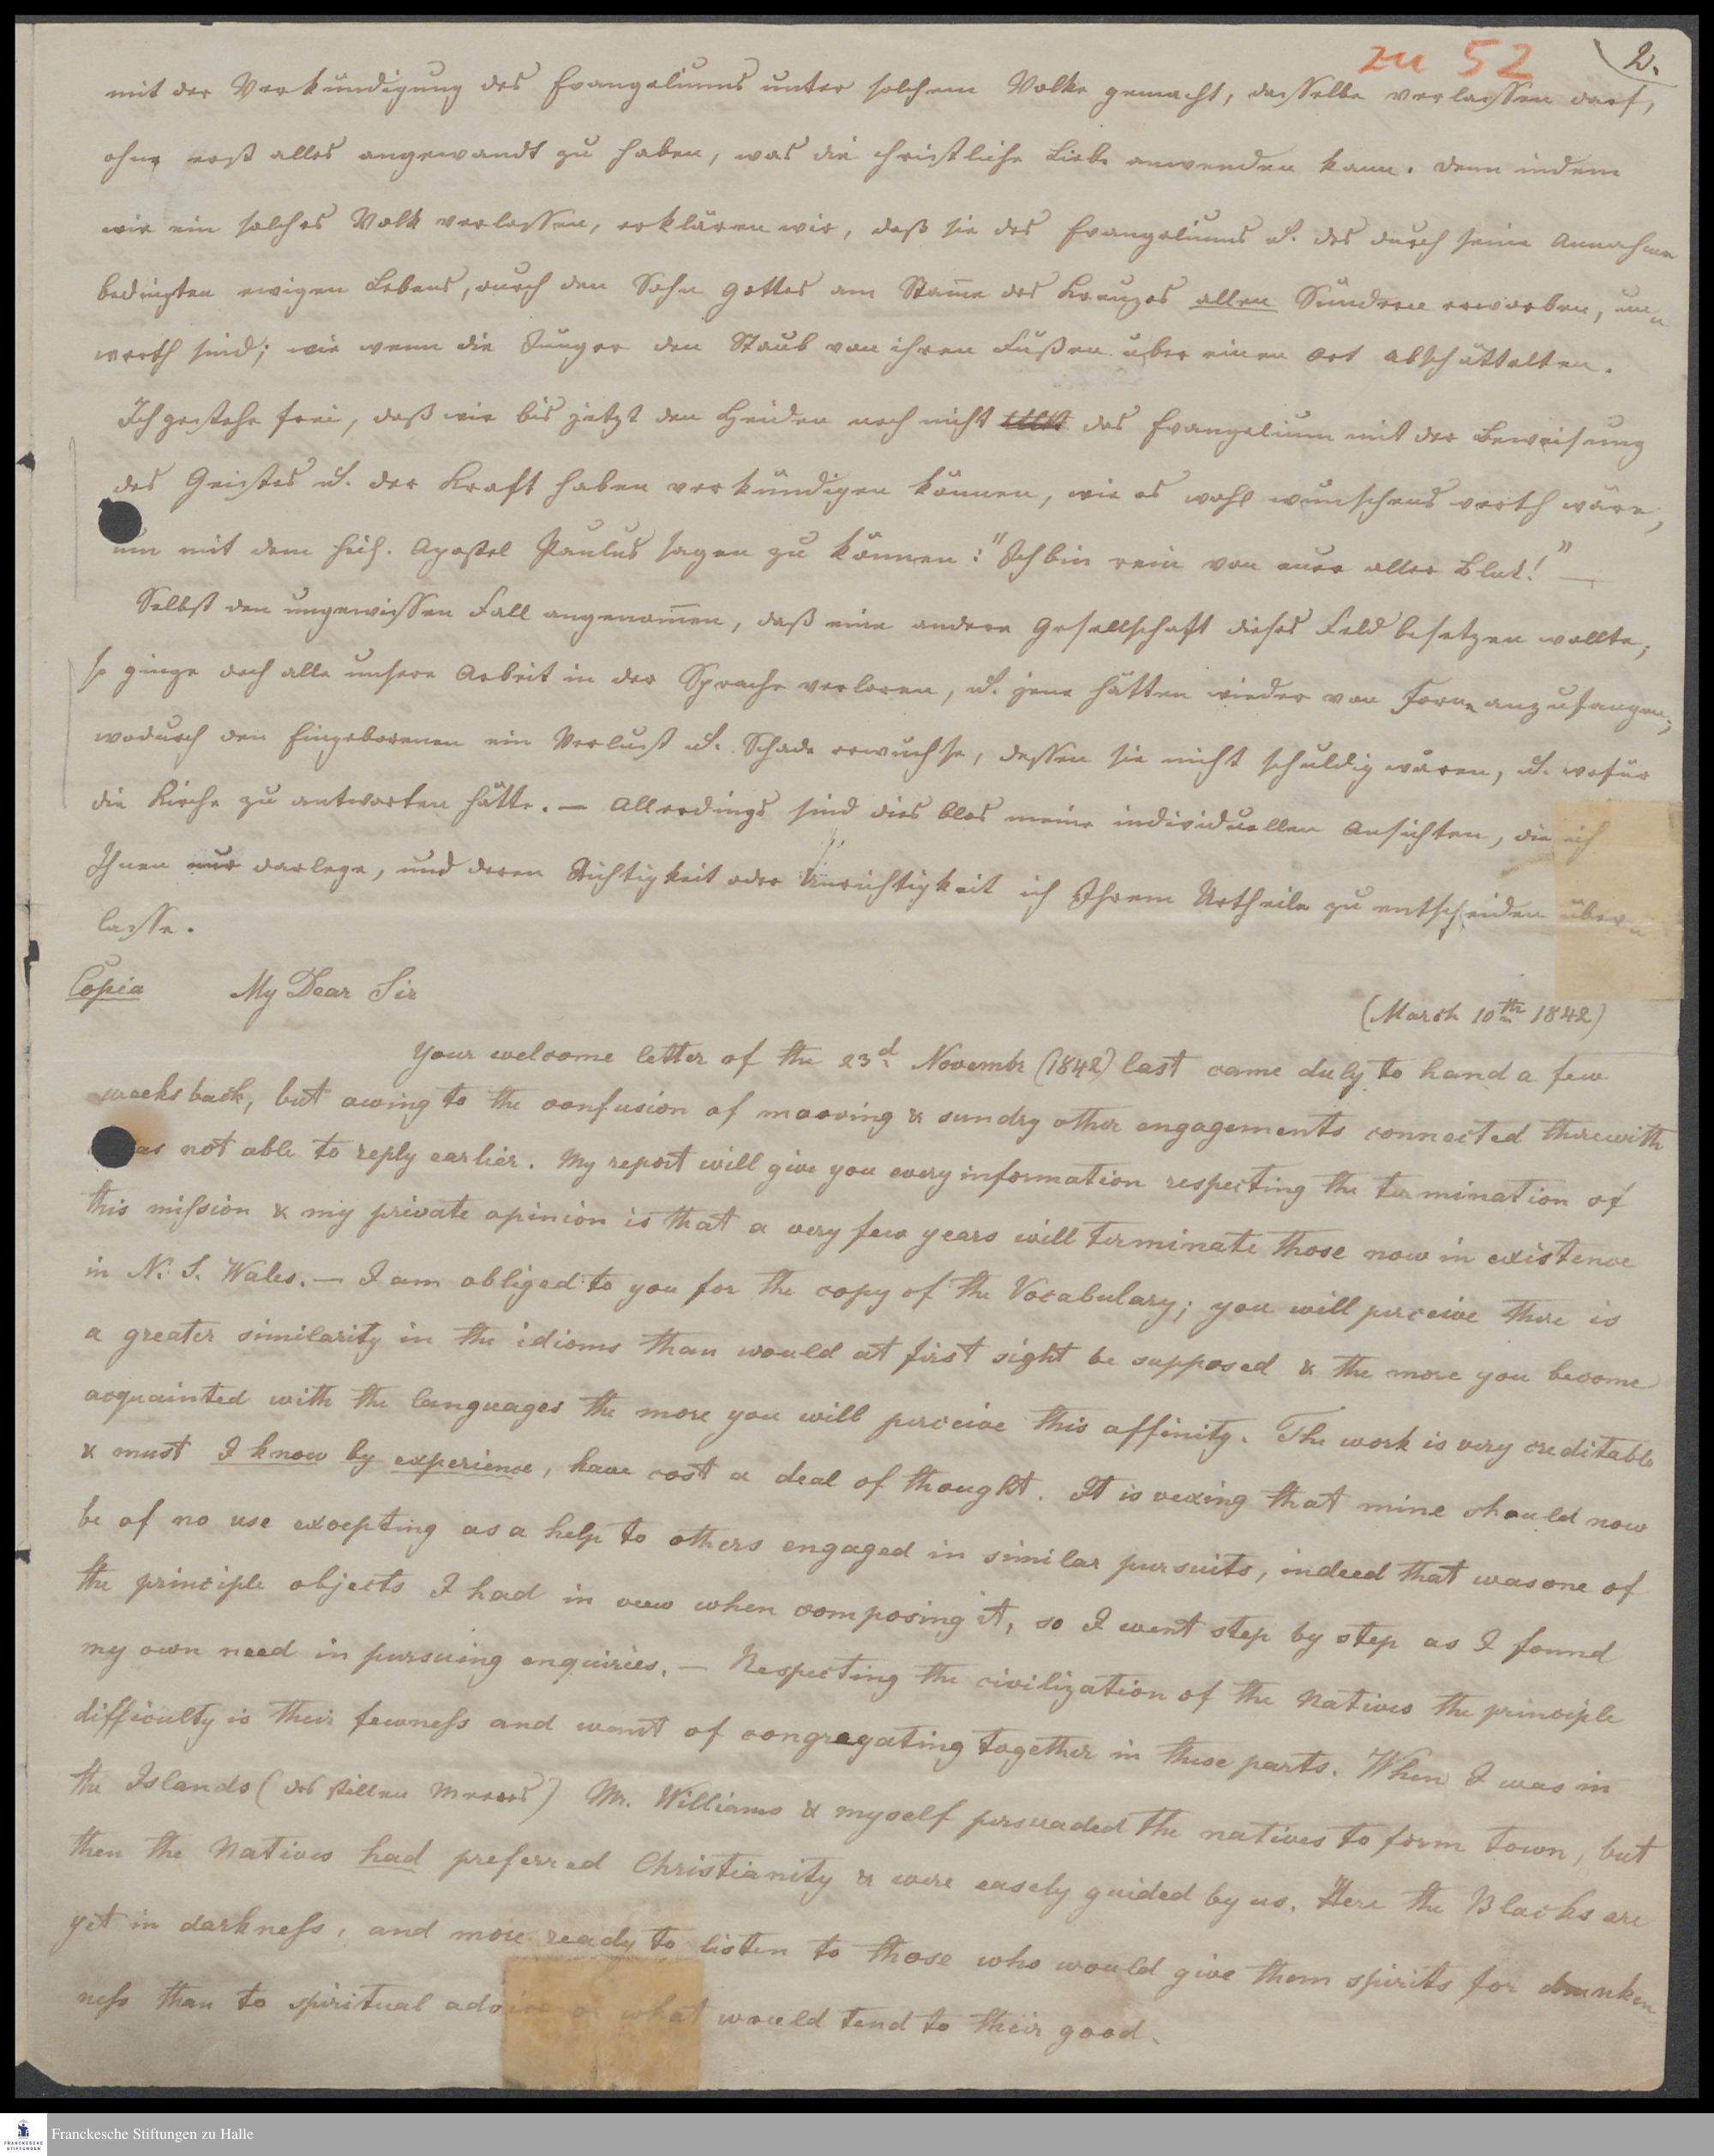 zu 52
2.
mit der Verkündigung des Evangeliums unter solchem Volke gemacht, dasselbe verlassen darf,
ohne erst alles angewandt zu haben, was die christliche Liebe anwenden kann. Denn indem
wir ein solches Volk verlassen, erklären wir, daß sie des Evangeliums u. des durch seine Annahme
bedingten ewigen Lebens, durch den Sohn Gottes am Stam̅e des Kreuzes allen Sündern erworben, un„
werth sind; wie wenn die Jünger den Staub von ihren Füßen über einen Ort abschüttelten.
Ich gestehe frei, daß wir bis jetzt den Heiden noch nicht das Evangelium mit der Beweisung
des Geistes u. der Kraft haben verkündigen können, wie es wohl wünschens werth wäre,
um mit dem heil. Apostel Paulus sagen zu können: "Ich bin rein von eurer aller Blut!" —
Selbst den ungewissen Fall angenom̅en, daß eine andere Gesellschaft dieses Feld besetzen wollte,
so ginge doch alle unsere Arbeit in der Sprache verloren, u. jene hätten wieder von Forne anzufangen;
wodurch den Eingeborenen ein Verlust u. Schade erwüchse, dessen sie nicht schuldig wären, u. wofür
die Kirche zu antworten hätte. — Allerdings sind dies blos meine individuellen Ansichten, die ich
Ihnen nur darlege, und deren Richtigkeit oder Unrichtigkeit ich Ihrem Urtheile zu entscheiden über„
lasse.
Copia My Dear Sir
(March 10th 1842)
Your welcome letter of the 23d Novembr (1842) last came duly to hand a few
weeks back, but owing to the confusion of mooving & sundry other engagements connected therewith
was not able to reply earlier. My report will give you every information respecting the termination of
this mission & my private opinion is that a very few years will terminate those now in existence
in N. S. Wales. — I am obliged to you for the copy of the Vocabulary; you will perceive there is
a greater similarity in the idioms than would at first sight be supposed & the more you become
acquainted with the languages the more you will perceive this affinity. The work is very creditable
& must I know by experience, have cost a deal of thought. It is vexing that mine should now
be of no use excepting as a help to others engaged in similar pursuits, indeed that was one of
the principle objects I had in view when composing it, so I went step by step as I found
my own need in pursuing enquiries. — Respecting the civilization of the Natives the principle
difficulty is their fewness and want of congregating together in these parts. When I was in
the Islands (des stillen Meeres) Mr. Williams & myself persuaded the natives to form town, but
then the Natives had preferred Christianity & were easely guided by us. Here the Blacks are
yet in darkness, and more ready to listen to those who would give them spirits for drunken
ness than to spiritual advice or what would tend to their good.
Franckesche Stiftungen zu Halle
FRANCKESCHE
STIFTUNGEN